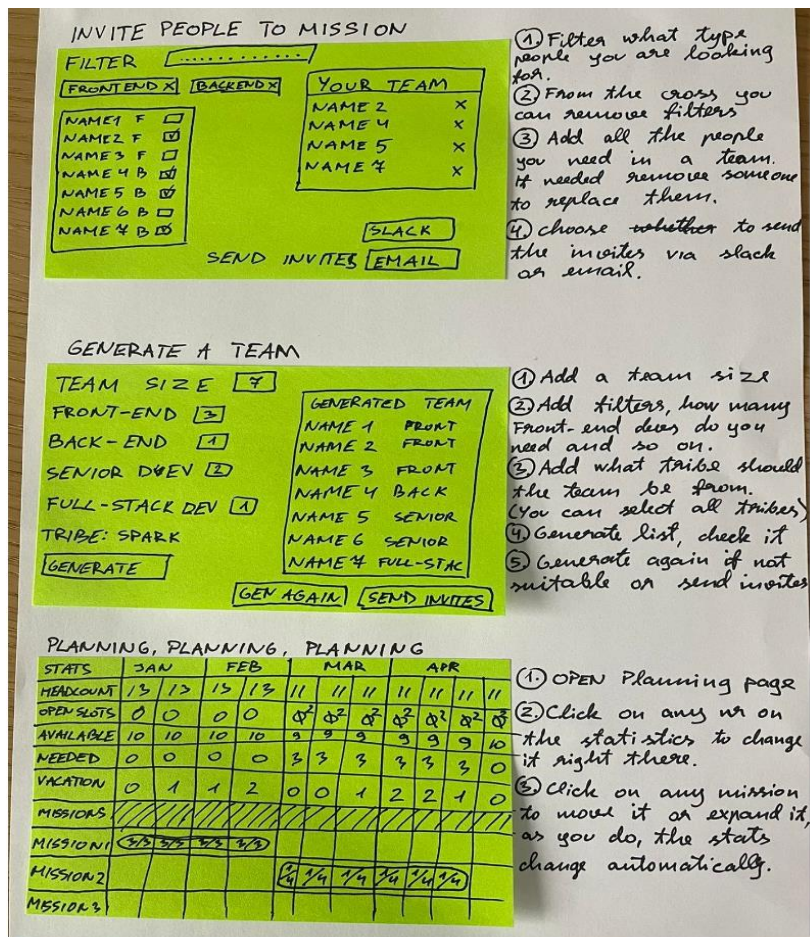 INVITE PEOPLE TO MISSION
FILTER ............
FRONTEND X BACKEND X
NAME1 F
NAME2 F
NAME3 F
NAME4 B
NAME5 B
NAME6 B
NAME7 B
YOUR TEAM
NAME 2 X
NAME 4 X
NAME 5 X
NAME 7 X
SLACK
SEND INVITES EMAIL
① Filter what type
people you are looking
for.
② From the cross you
can remove filters
③ Add all the people
you need in a team.
If needed remove someone
to replace them.
④ choose whether to send
the invites via slack
or email.
GENERATE A TEAM
TEAM SIZE 7
FRONT-END 3
BACK-END 1
SENIOR DEV 2
FULL-STACK DEV 1
TRIBE: SPARK
GENERATE
GENERATED TEAM
NAME 1 FRONT
NAME 2 FRONT
NAME 3 FRONT
NAME 4 BACK
NAME 5 SENIOR
NAME 6 SENIOR
NAME 7 FULL-STAC
GEN AGAIN SEND INVITES
① Add a team size
② Add filters, how many
Front-end devs do you
need and so on.
③ Add what tribe should
the team be from.
(You can select all tribes)
④ Generate list, check it
⑤ Generate again if not
suitable or send invites
PLANNING, PLANNING, PLANNING
STATS JAN FEB MAR APR
HEADCOUNT 13 13 13 13 11 11 11 11 11 11 11
OPEN SLOTS 0 0 0 0 2 2 2 2 2 2 2
AVAILABLE 10 10 10 10 9 9 9 9 9 9 10
NEEDED 0 0 0 0 3 3 3 3 3 3 0
VACATION 0 1 1 2 0 0 1 2 2 1 0
MISSIONS
MISSION1 3/3 3/3 3/3 3/3
MISSION2 1/4 1/4 1/4 1/4 1/4 1/4
MISSION3
①. OPEN Planning page
② Click on any nr on
the statistics to change
it right there.
③ Click on any mission
to move it or expand it,
as you do, the stats
change automatically.